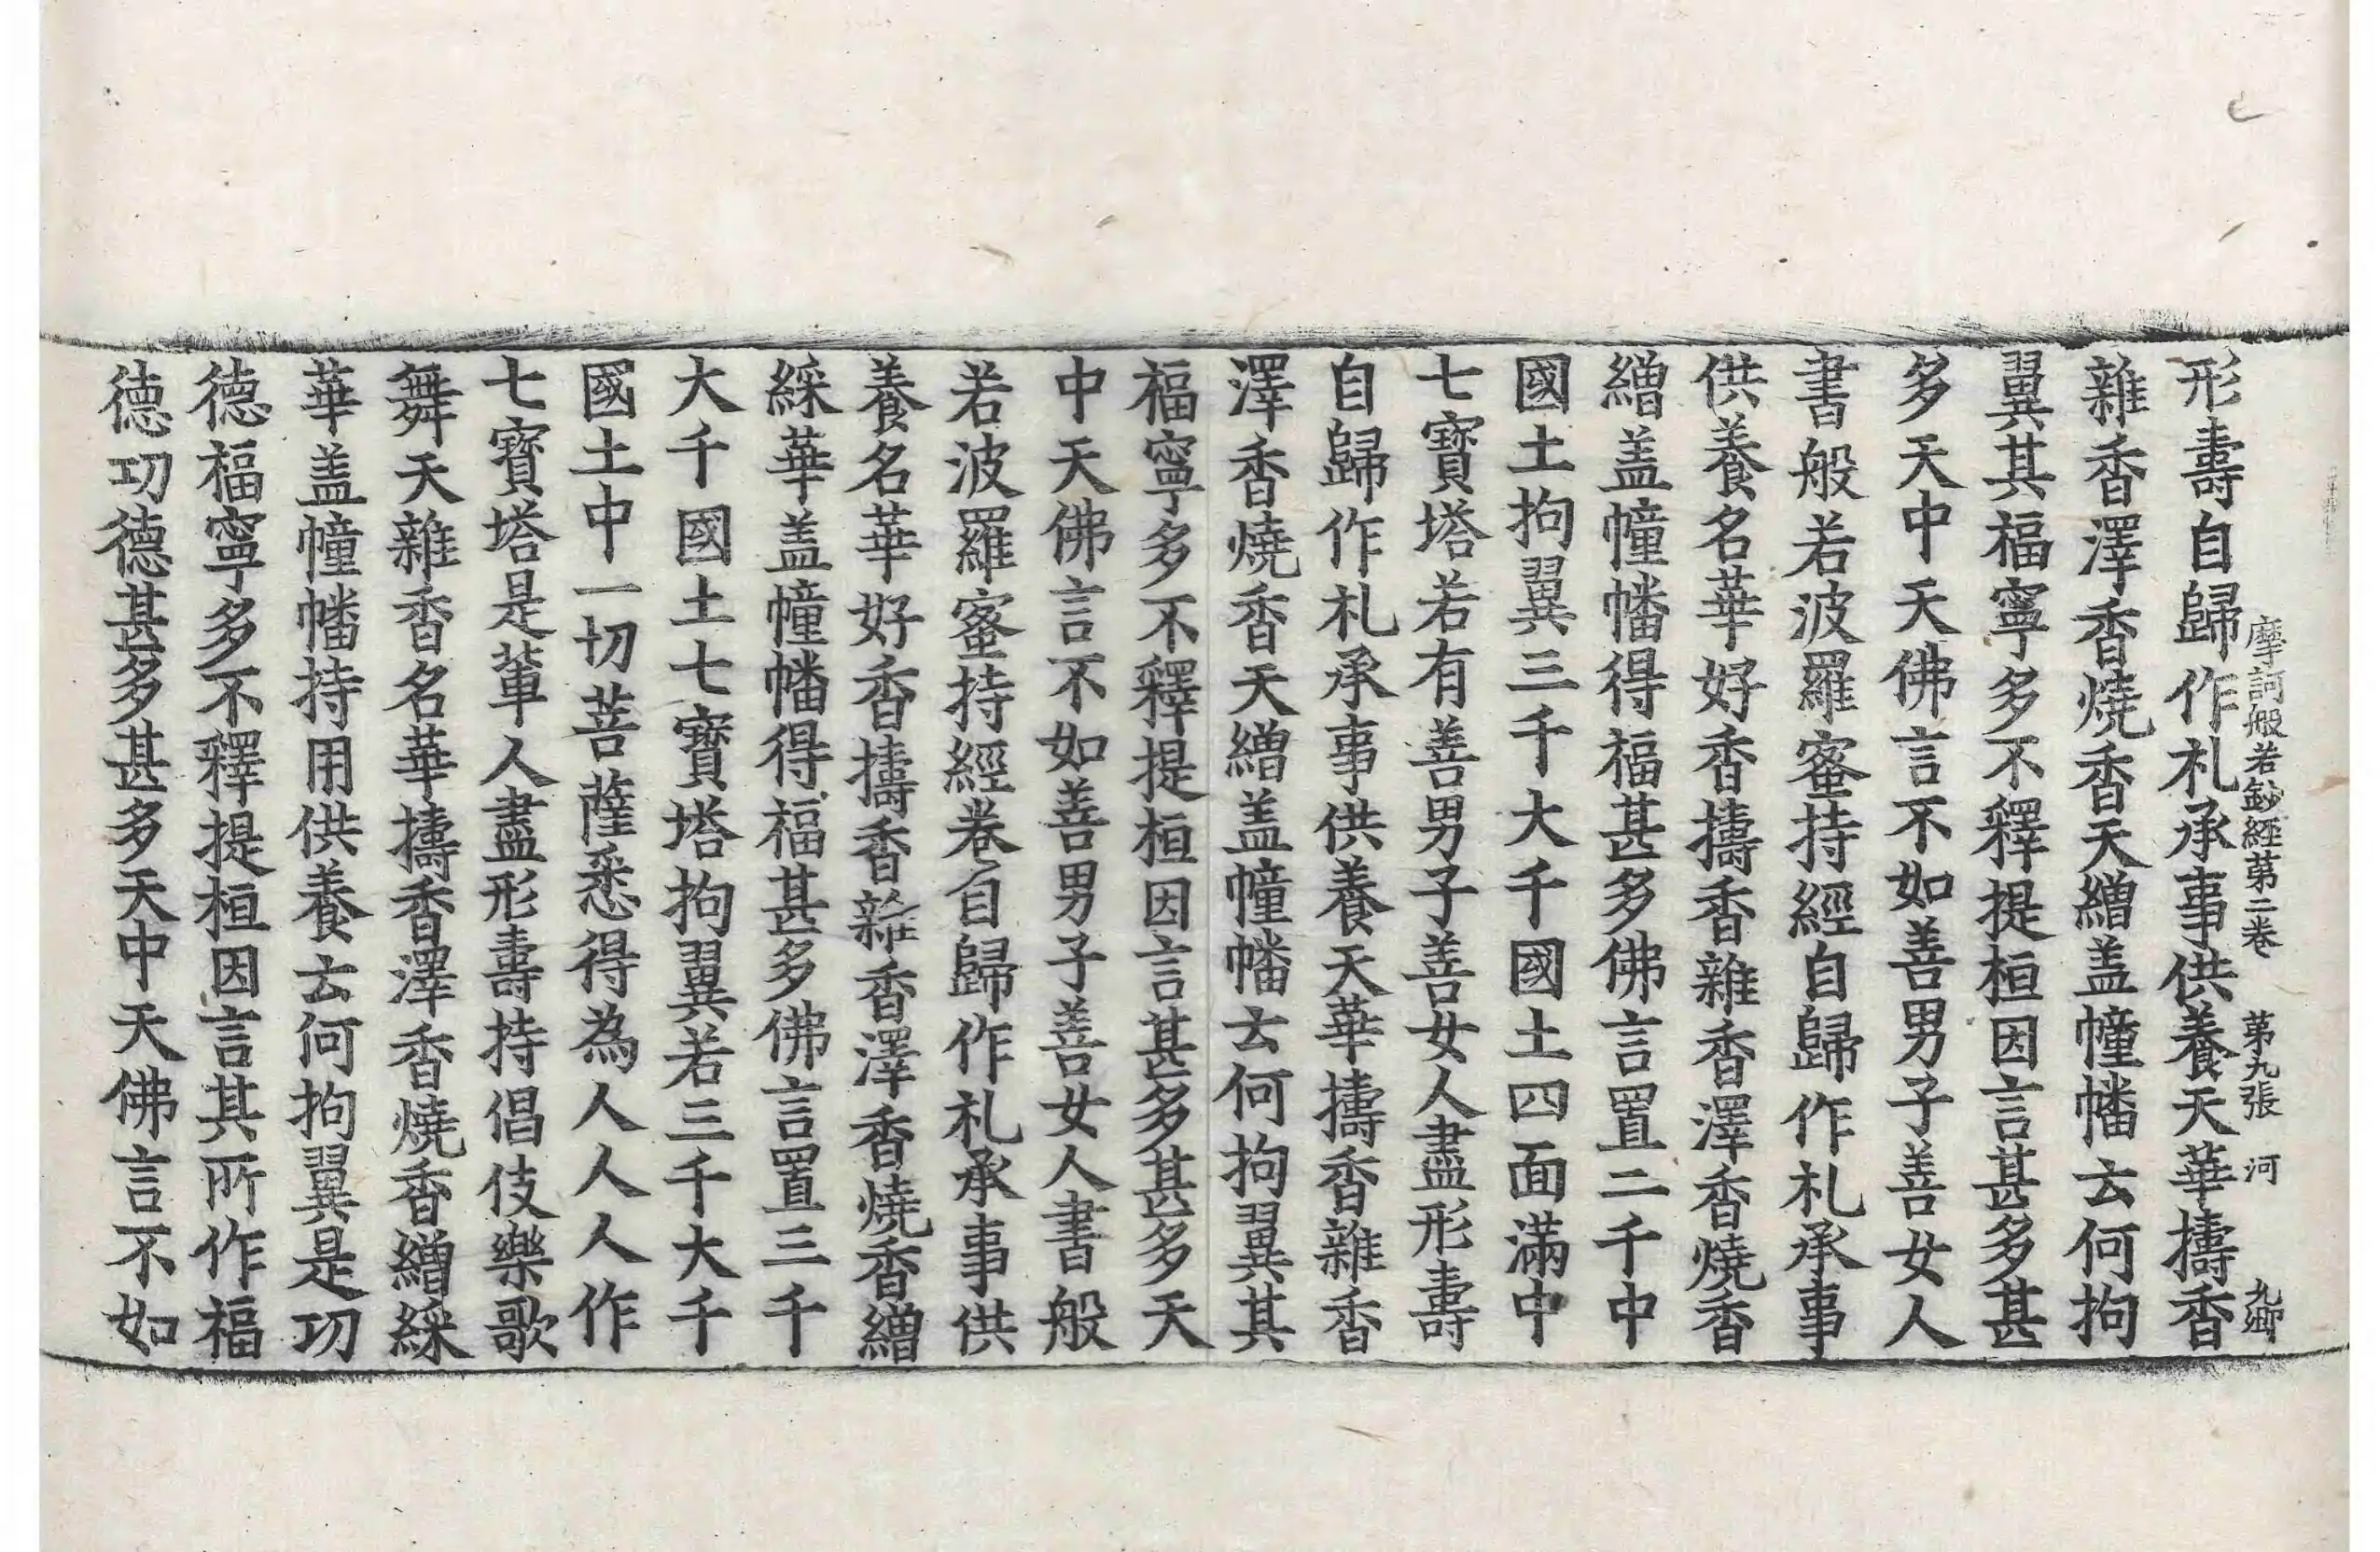 摩訶般若鈔經第二卷 第九張 河 九卿
形壽自歸作札承事供養天華擣香
雜香澤香燒香天繒盖幢幡云何拘
翼其福寧多不釋提桓因言甚多甚
多天中天佛言不如善男子善女人
書般若波羅蜜持經自歸作札承事
供養名華好香擣香雜香澤香燒香
繒盖幢幡得福甚多佛言置二千中
國土拘翼三千大千國土四面滿中
七寶塔若有善男子善女人盡形壽
自歸作札承事供養天華擣香雜香
澤香燒香天繒盖幢幡云何拘翼其
福寧多不釋提桓因言甚多甚多天
中天佛言不如善男子善女人書般
若波羅蜜持經卷自歸作札承事供
養名華好香擣香雜香澤香燒香繒
綵華盖幢幡得福甚多佛言置三千
大千國土七寶塔拘翼若三千大千
國土中一切菩薩悉得為人人人作
七寶塔是軰人盡形壽持倡伎樂歌
舞天雜香名華擣香澤香燒香繒綵
華盖幢幡持用供養云何拘翼是功
德福寧多不釋提桓因言其所作福
德功德甚多甚多天中天佛言不如